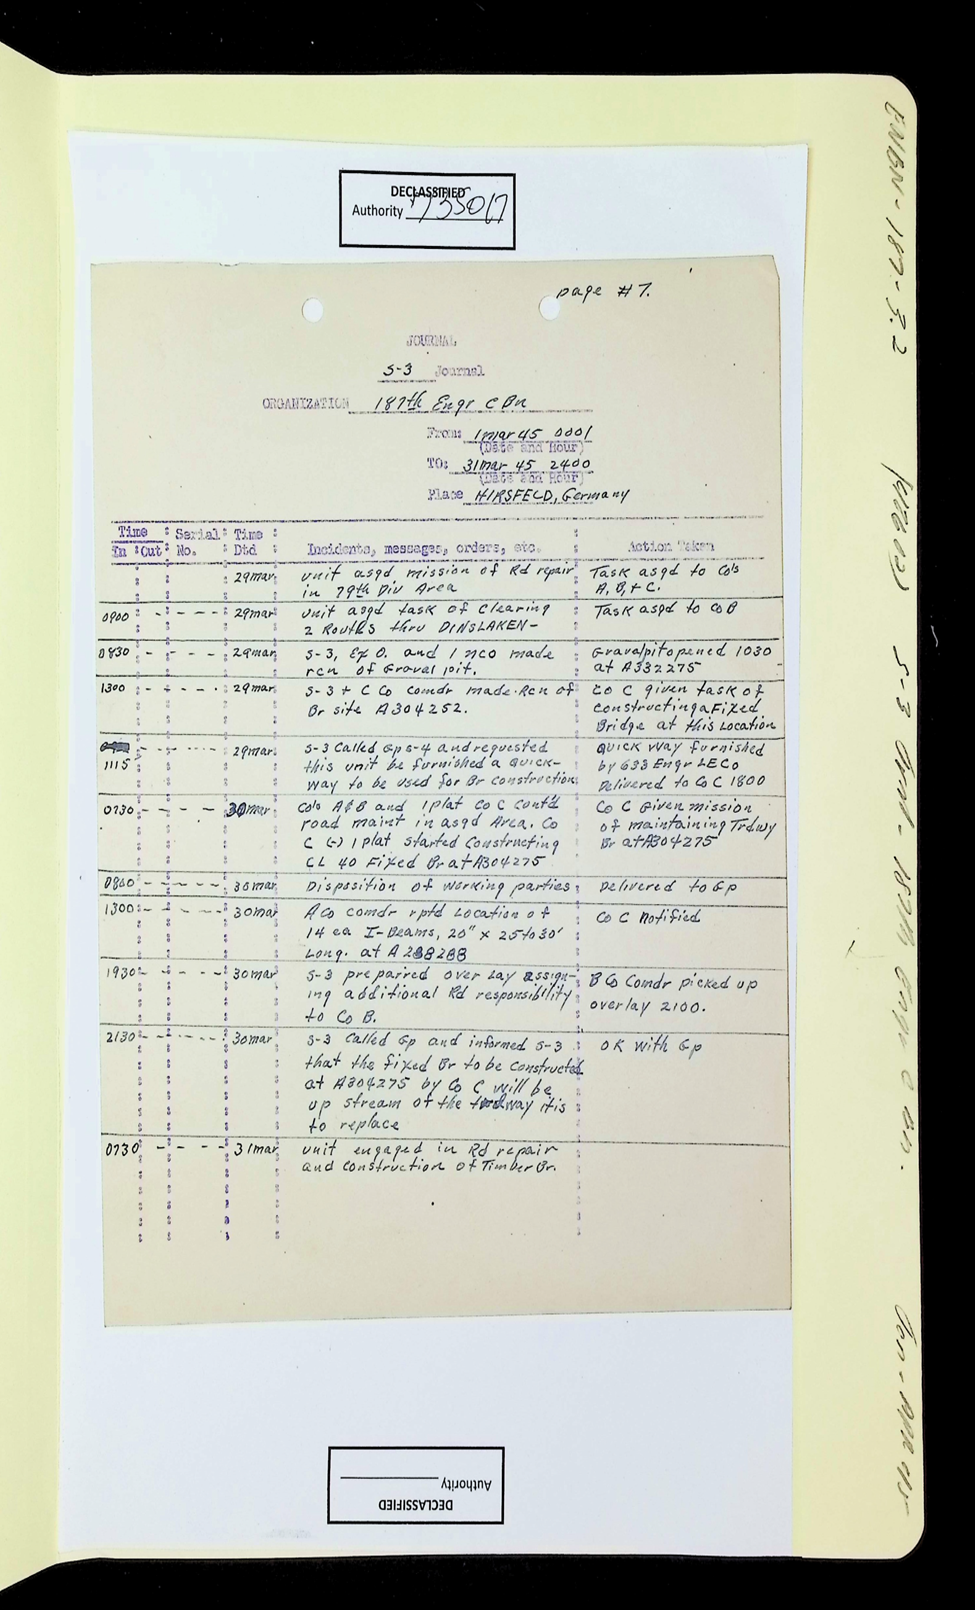 DECLASSIFIED
Authority 735017
page #7.
JOURNAL
S-3 Journal
ORGANIZATION 187th Engr C Bn
From: 1 mar 45 0001
(Date and Hour)
TO: 31 Mar 45 2400
(Date and Hour)
Place HIRSFELD, Germany
Time : Serial : Time : :
In : Out : No. : Dtd : Incidents, messages, orders, etc. : Action Taken
29 mar unit asgd mission of Rd repair Task asgd to Co's
in 79th Div Area A, B, + C.
0900 - - - - - 29 mar unit asgd task of clearing Task asgd to Co B
2 Routes thru DINSLAKEN-
0830 - - - - - 29 mar S-3, Ex O. and 1 nco made Gravel pit opened 1030
rcn of Gravel pit. at A332275
1300 - - - - - 29 mar S-3 + C Co comdr made Rcn of Co C given task of
Br site A304252. constructing a Fixed
Bridge at this Location
1115 - - - - - 29 mar S-3 Called Gp S-4 and requested Quick Way furnished
this unit be furnished a quick- by 633 Engr LE Co
way to be used for Br construction Delivered to Co C 1800
0730 - - - - 30 mar Co's A & B and 1 plat Co C cont'd Co C Given mission
road maint in asgd Area. Co of maintaining Trdwy
C (-) 1 plat started Constructing Br at A304275
CL 40 Fixed Br at A304275
0800 - - - - - 30 mar Disposition of working parties Delivered to Gp
1300 - - - - - 30 mar A Co comdr rptd Location of Co C Notified
14 ea I-Beams, 20" x 25 to 30'
Long. at A238288
1930 - - - - 30 mar S-3 preparred over Lay assign- B Co Comdr picked up
ing additional Rd responsibility overlay 2100.
to Co B.
2130 - - - - - 30 mar S-3 Called Gp and informed S-3 OK with Gp
that the fixed Br to be constructed
at A304275 by Co C will be
up stream of the trdway it is
to replace
0730 - - - - 31 mar unit engaged in Rd repair
and Construction of Timber Br.
DECLASSIFIED
Authority
ENBN-187-3.2
S-3 Jrnl - 187th Engr C Bn.
Jan - Apr 45